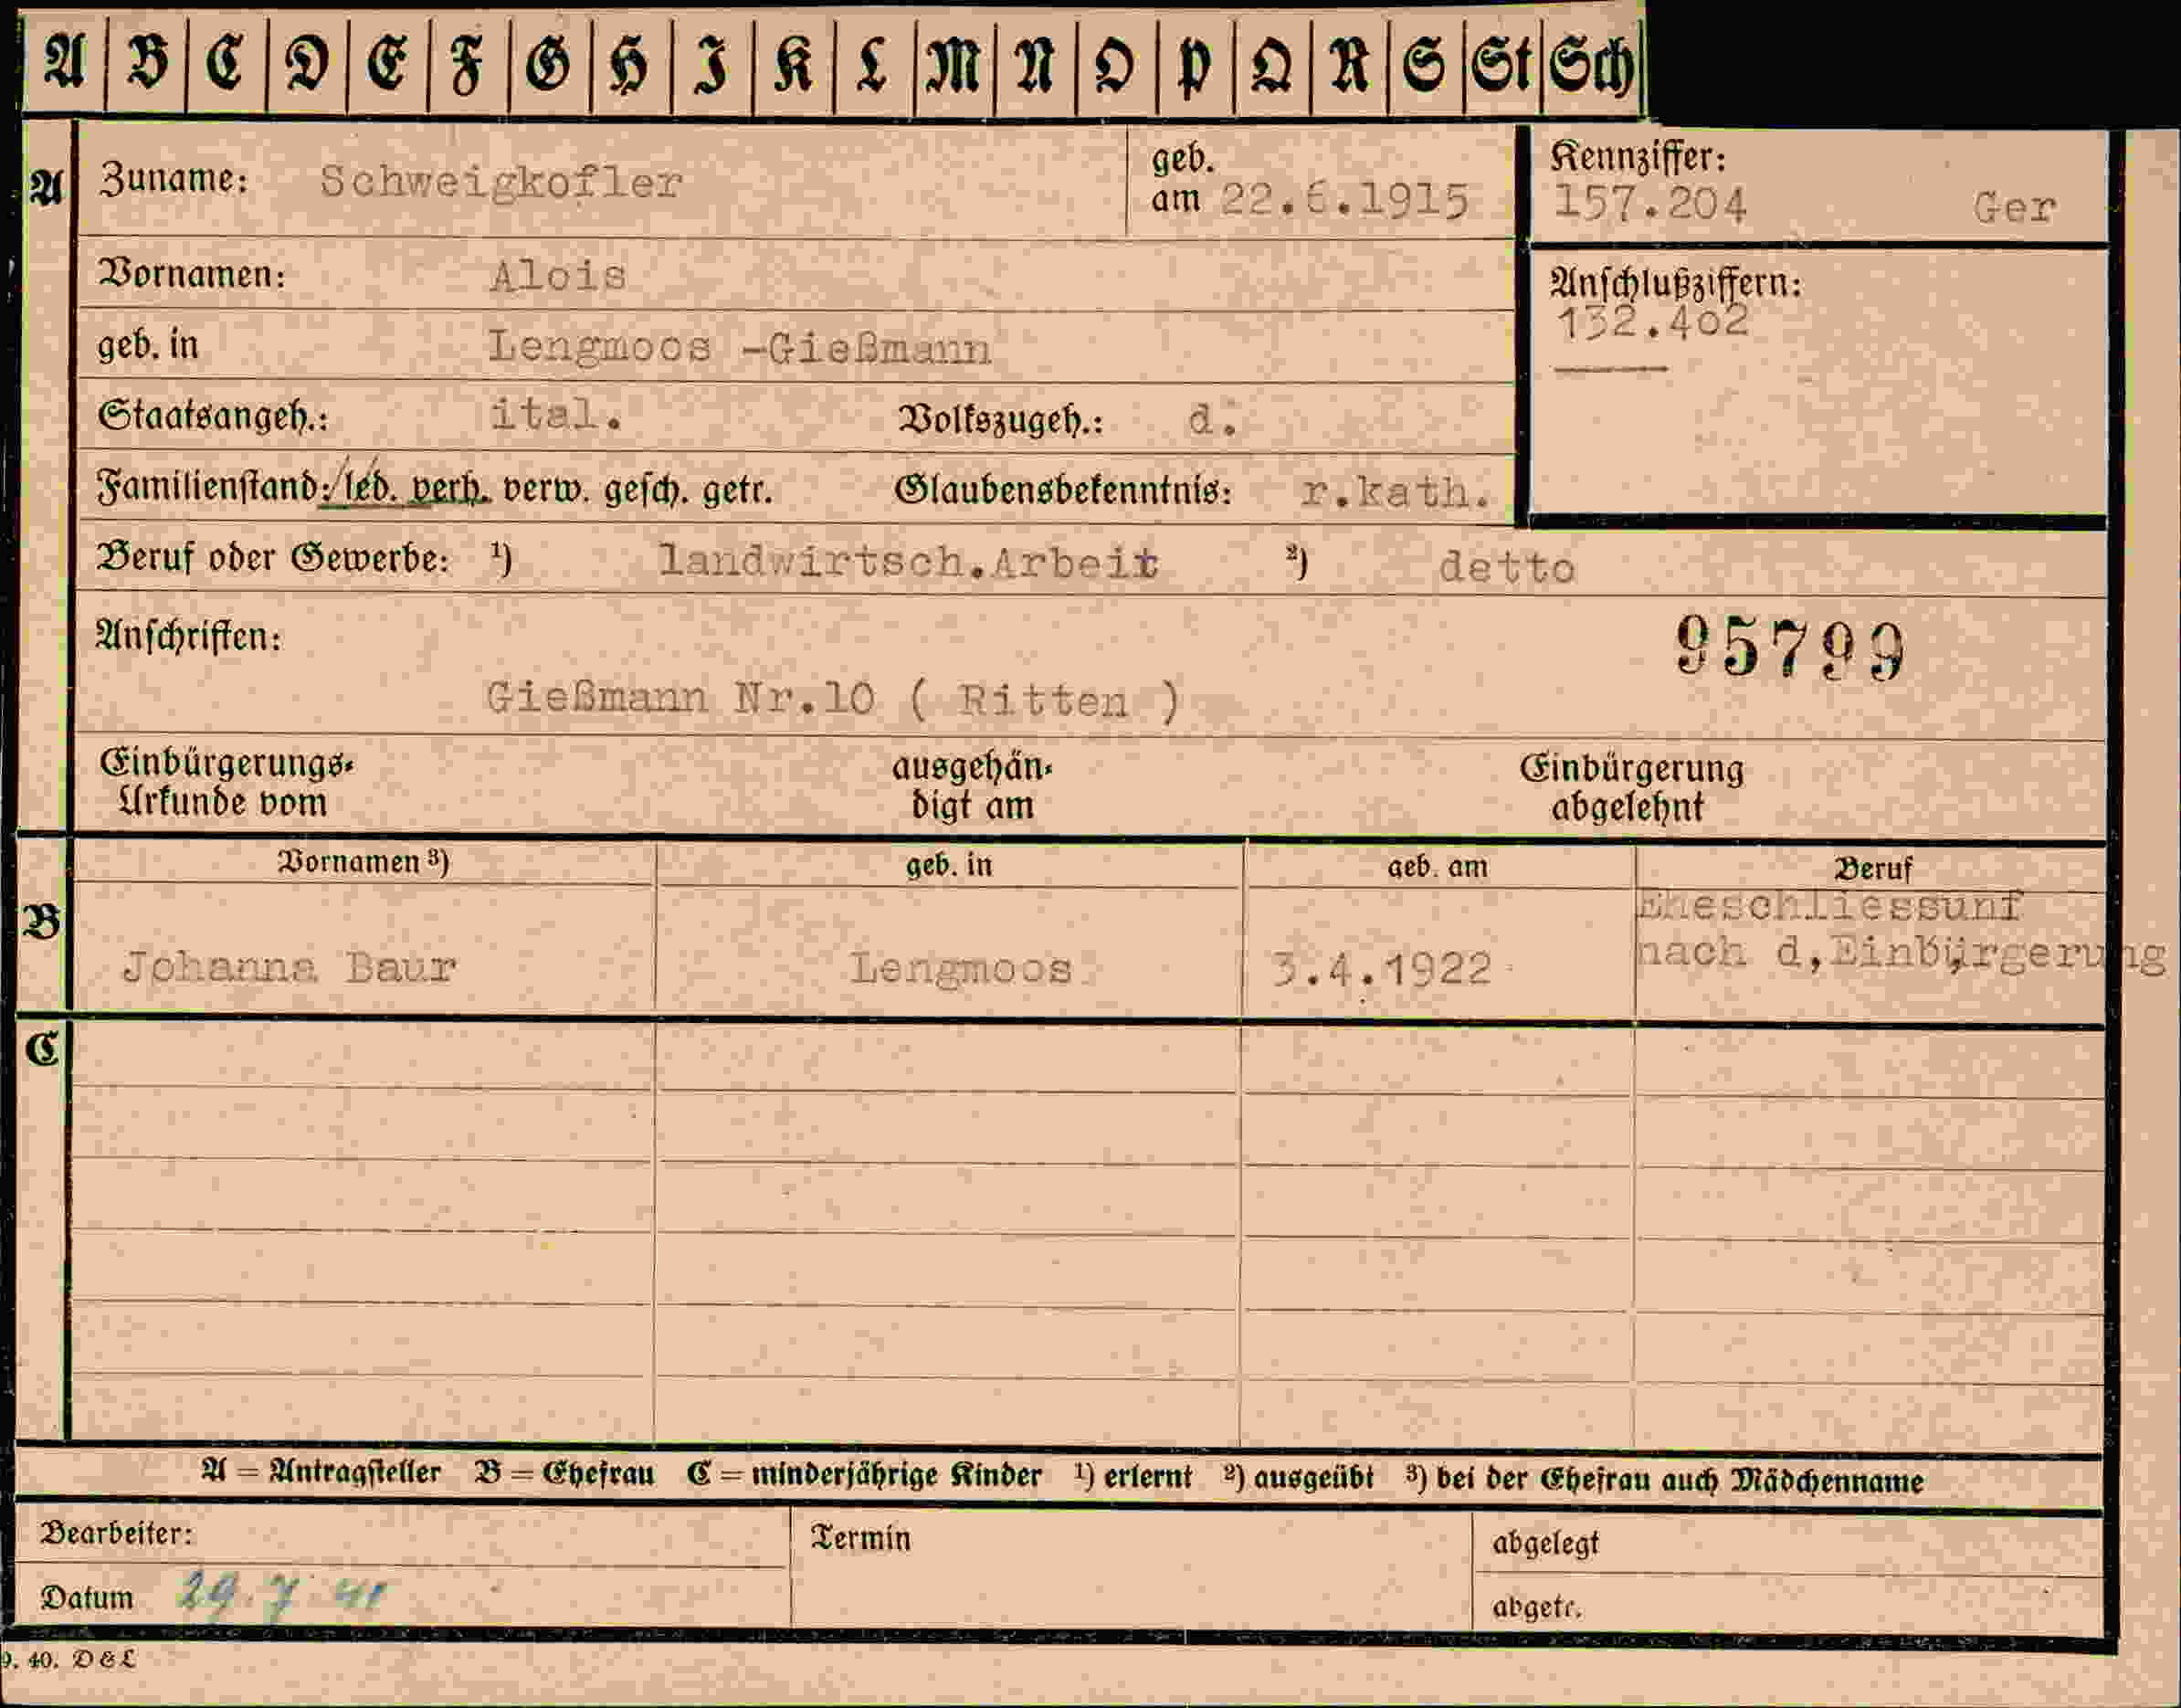 A B C D E F G H I K L M N O P Q R S St Sch
A Zuname: Schweigkofler geb. am 22.6.1915 Kennziffer: 157.204 Ger
Vornamen: Alois Anschlußziffern: 132.402
geb. in Lengmoos -Gießmann
Staatsangeh.: ital. Volkszugeh.: d.
Familienstand: led. verh. verw. gesch. getr. Glaubensbekenntnis: r.kath.
Beruf oder Gewerbe: ¹) landwirtsch.Arbeit ²) detto
Anschriften: 95799
Gießmann Nr.10 ( Ritten )
Einbürgerungs- ausgehän- Einbürgerung
Urkunde vom digt am abgelehnt
Vornamen ³) geb. in geb. am Beruf
Eheschliessunf
B Johanna Baur Lengmoos 3.4.1922 nach d,Einbürgerung
C
A = Antragsteller B = Ehefrau C = minderjährige Kinder ¹) erlernt ²) ausgeübt ³) bei der Ehefrau auch Mädchenname
Bearbeiter: Termin abgelegt
Datum 29.7.41 abgetr.
9. 40. D & L